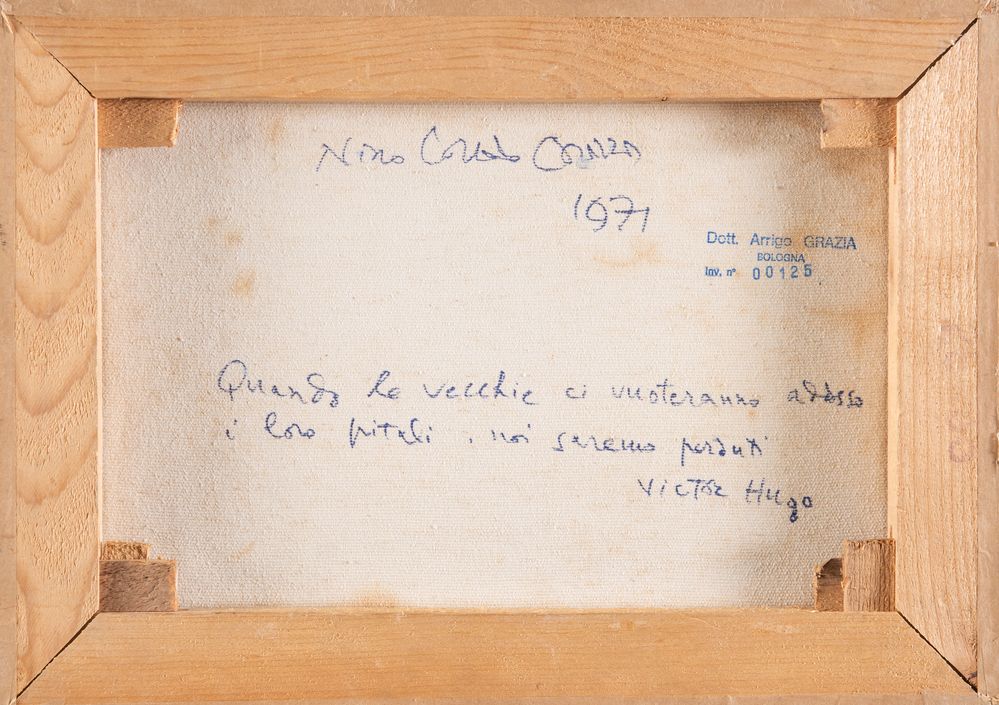 Nino Corrado Corazza
1971
Dott. Arrigo GRAZIA
BOLOGNA
Inv. n° 00125
Quando le vecchie ci vuoteranno adosso
i loro pitali, noi saremo perduti
Victor Hugo